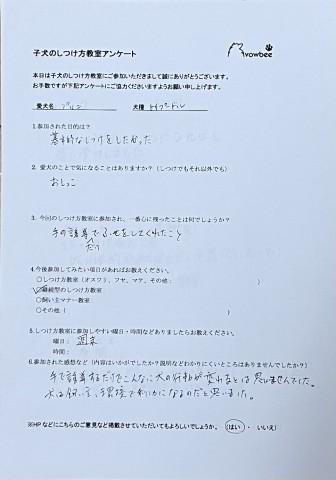 子犬のしつけ方教室アンケート
wowbee
本日は子犬のしつけ方教室にご参加いただきまして誠にありがとうございます。
お手数ですが下記アンケートにご協力くださいますようお願い申し上げます。
愛犬名 プリン 犬種 トイプードル
1.参加された目的は?
基本的なしつけをしたかった
2. 愛犬のことで気になることはありますか?(しつけでもそれ以外でも)
おしっこ
3. 今回のしつけ方教室に参加され、一番心に残ったことは何でしょうか?
手の誘導だけでふせをしてくれたこと
4.今後参加してみたい項目があればお教えください。
○しつけ方教室(オスワリ、フセ、マテ、その他: )
○継続型のしつけ方教室
○飼い主マナー教室
○その他( )
5.しつけ方教室に参加しやすい曜日・時間などありましたらお教えください。
曜日: 週末
時間:
6.参加された感想など(内容はいかがでしたか?説明などわかりにくいところはありませんでしたか?)
手で誘導するだけでこんなに犬の行動が変わるとは思いませんでした。
犬は飼い主、環境で利口になるのだと思いました。
※HPなどにこちらのご意見など掲載させていただいてもよろしいでしょうか。 (はい ・ いいえ)